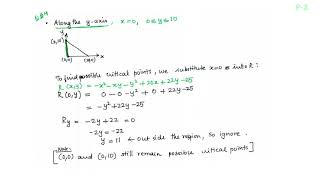 P-3
• Along the y-axis, x=0, 0≤y≤10
y
(0,10)
(0,0) x
To find possible critical points, we substitute x=0 into R:
R(x,y) = -x²-xy-y²+20x+22y-25
R(0,y) = 0-0-y²+0+22y-25
= -y²+22y-25
Ry = -2y+22 = 0
-2y = -22
y = 11 ← out side the region, so ignore.
Note:
[(0,0) and (0,10) still remain possible critical points]